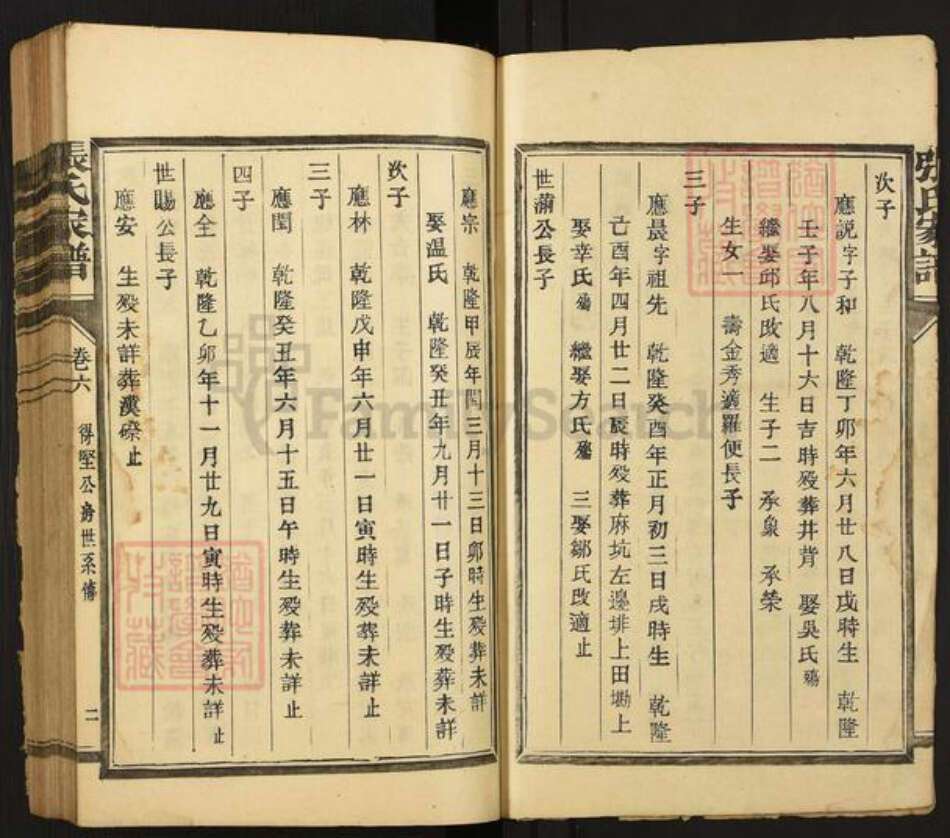 張氏家譜
次子
應説字子和 乾隆丁卯年六月廿八日戌時生 乾隆
壬子年八月十六日吉時殁葬井背 娶吳氏殤
繼娶邱氏改適 生子二 承彖 承榮
生女一 壽金秀適羅便長子
三子
應晨字祖先 乾隆癸酉年正月初三日戌時生 乾隆
亡酉年四月廿二日辰時殁葬麻坑左邊排上田墈上
娶幸氏殤 繼娶方氏殤 三娶鄒氏改適止
世蒲公長子
應宗 乾隆甲辰年閏三月十三日卯時生殁葬未詳
娶温氏 乾隆癸丑年九月廿一日子時生殁葬未詳
次子
應林 乾隆戊申年六月廿一日寅時生殁葬未詳止
三子
應閏 乾隆癸丑年六月十五日午時生殁葬未詳止
四子
應全 乾隆乙卯年十一月廿九日寅時生殁葬未詳止
世賜公長子
應安 生殁未詳葬漢磜止
張氏家譜 卷六 得堅公房世系傳 二
FamilySearch